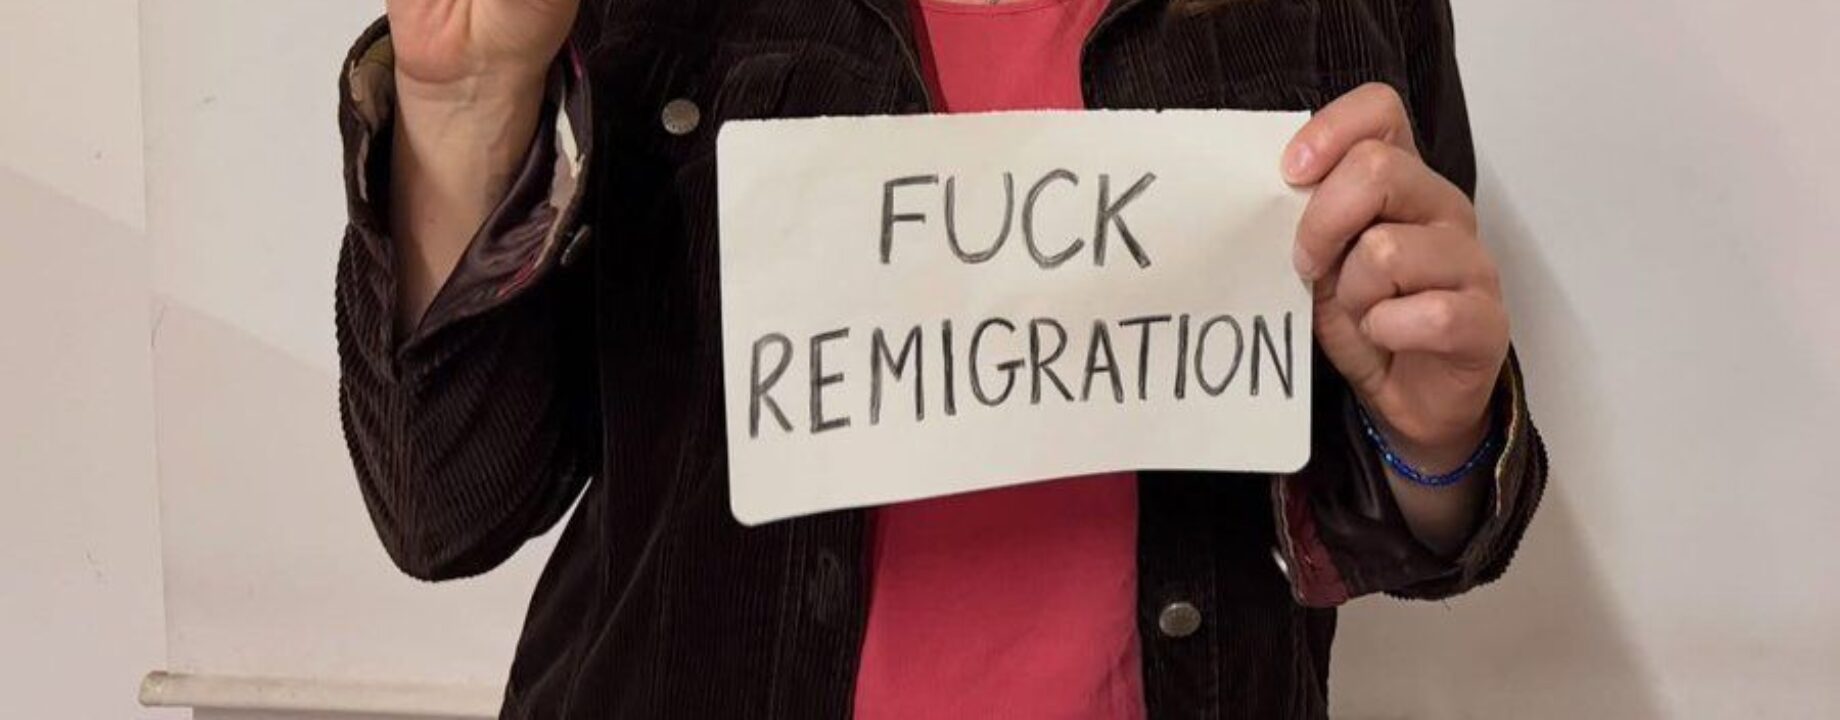 FUCK
REMIGRATION